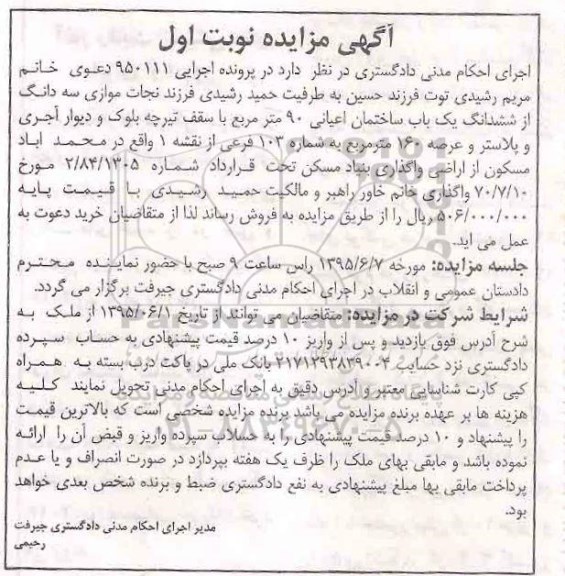 آگهی مزایده نوبت اول
اجرای احکام مدنی دادگستری در نظر دارد در پرونده اجرایی ۹۵۰۱۱۱ دعوی خانم
مریم رشیدی توت فرزند حسین به طرفیت حمید رشیدی فرزند نجات موازی سه دانگ
از ششدانگ یک باب ساختمان اعیانی ۹۰ متر مربع با سقف تیرچه بلوک و دیوار آجری
و پلاستر و عرصه ۱۶۰ مترمربع به شماره ۱۰۳ فرعی از نقشه ۱ واقع در محمد اباد
مسکون از اراضی واگذاری بنیاد مسکن تحت قرارداد شماره ۲/۸۴/۱۳۰۵ مورخ
۷۰/۷/۱۰ واگذاری خانم خاور راهبر و مالکیت حمید رشیدی با قیمت پایه
۵۰۶/۰۰۰/۰۰۰ ریال را از طریق مزایده به فروش رساند لذا از متقاضیان خرید دعوت به
عمل می اید.
جلسه مزایده: مورخه ۱۳۹۵/۶/۷ راس ساعت ۹ صبح با حضور نماینده محترم
دادستان عمومی و انقلاب در اجرای احکام مدنی دادگستری جیرفت برگزار می گردد.
شرایط شرکت در مزایده: متقاضیان می توانند از تاریخ ۱۳۹۵/۰۶/۱ از ملک به
شرح آدرس فوق بازدید و پس از واریز ۱۰ درصد قیمت پیشنهادی به حساب سپرده
دادگستری نزد حساب ۲۱۷۱۲۹۳۸۳۹۰۰۴ بانک ملی در پاکت درب بسته به همراه
کپی کارت شناسایی معتبر و آدرس دقیق به اجرای احکام مدنی تحویل نمایند کلیه
هزینه ها بر عهده برنده مزایده می باشد برنده مزایده شخصی است که بالاترین قیمت
را پیشنهاد و ۱۰ درصد قیمت پیشنهادی را به حساب سپرده واریز و قبض آن را ارائه
نموده باشد و مابقی بهای ملک را ظرف یک هفته بپردازد در صورت انصراف و یا عدم
پرداخت مابقی بها مبلغ پیشنهادی به نفع دادگستری ضبط و برنده شخص بعدی خواهد
بود.
مدیر اجرای احکام مدنی دادگستری جیرفت
رحیمی